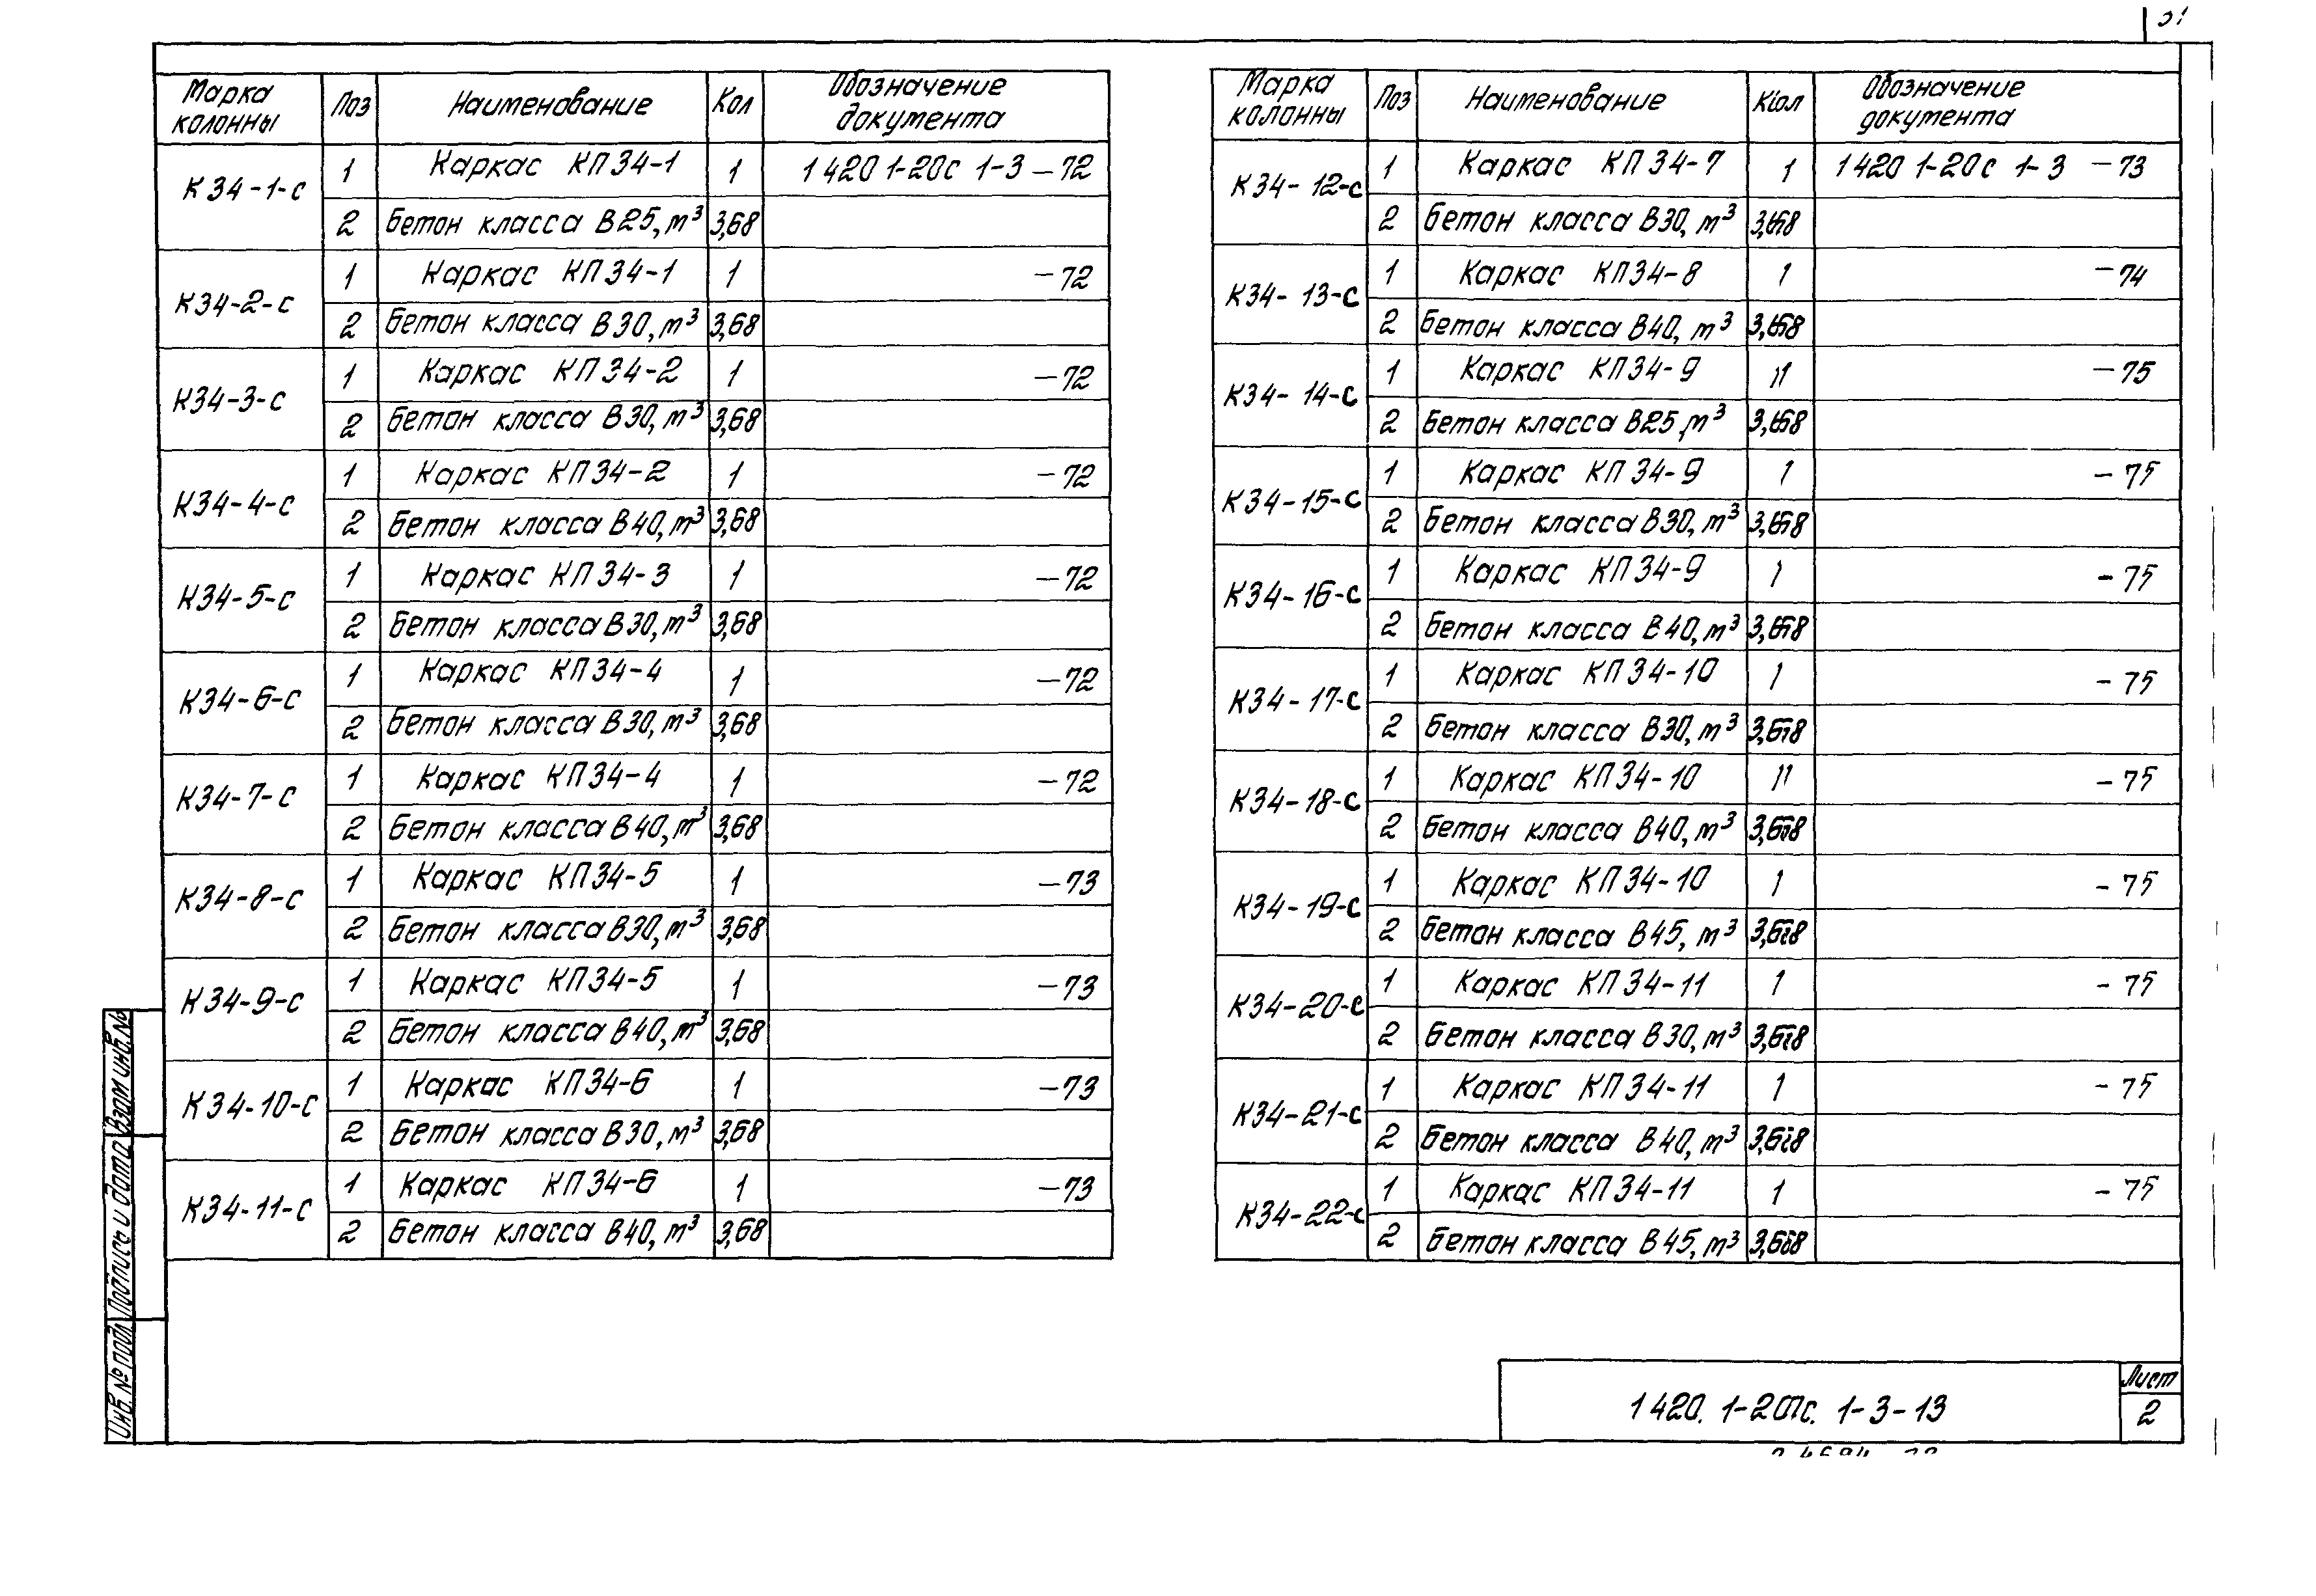 Марка колонны Поз Наименование Кол Обозначение документа
К34-1-с 1 Каркас КП34-1 1 1 420 1-20с 1-3 -72
2 Бетон класса В25, м³ 3,68
К34-2-с 1 Каркас КП34-1 1 -72
2 Бетон класса В30, м³ 3,68
К34-3-с 1 Каркас КП34-2 1 -72
2 Бетон класса В30, м³ 3,68
К34-4-с 1 Каркас КП34-2 1 -72
2 Бетон класса В40, м³ 3,68
К34-5-с 1 Каркас КП34-3 1 -72
2 Бетон класса В30, м³ 3,68
К34-6-с 1 Каркас КП34-4 1 -72
2 Бетон класса В30, м³ 3,68
К34-7-с 1 Каркас КП34-4 1 -72
2 Бетон класса В40, м³ 3,68
К34-8-с 1 Каркас КП34-5 1 -73
2 Бетон класса В30, м³ 3,68
К34-9-с 1 Каркас КП34-5 1 -73
2 Бетон класса В40, м³ 3,68
К34-10-с 1 Каркас КП34-6 1 -73
2 Бетон класса В30, м³ 3,68
К34-11-с 1 Каркас КП34-6 1 -73
2 Бетон класса В40, м³ 3,68
Марка колонны Поз Наименование Кол Обозначение документа
К34-12-с 1 Каркас КП34-7 1 1 420 1-20с 1-3 -73
2 Бетон класса В30, м³ 3,68
К34-13-с 1 Каркас КП34-8 1 -74
2 Бетон класса В40, м³ 3,68
К34-14-с 1 Каркас КП34-9 1 -75
2 Бетон класса В25, м³ 3,68
К34-15-с 1 Каркас КП34-9 1 -75
2 Бетон класса В30, м³ 3,68
К34-16-с 1 Каркас КП34-9 1 -75
2 Бетон класса В40, м³ 3,68
К34-17-с 1 Каркас КП34-10 1 -75
2 Бетон класса В30, м³ 3,68
К34-18-с 1 Каркас КП34-10 1 -75
2 Бетон класса В40, м³ 3,68
К34-19-с 1 Каркас КП34-10 1 -75
2 Бетон класса В45, м³ 3,68
К34-20-с 1 Каркас КП34-11 1 -75
2 Бетон класса В30, м³ 3,68
К34-21-с 1 Каркас КП34-11 1 -75
2 Бетон класса В40, м³ 3,68
К34-22-с 1 Каркас КП34-11 1 -75
2 Бетон класса В45, м³ 3,68
Инв. № подл. Подпись и дата Взам инв. №
1 420. 1-20с. 1-3-13
Лист
2